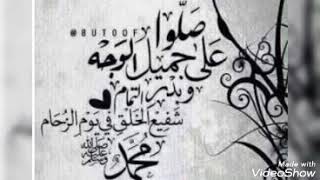 @BUTOOF
صَلُّوا
عَلى جَميل الوَجْه
وبَدْرِ التَّمام
شَفيعِ الخَلقِ في يَوْمِ الزِّحَام
مُحَمَّد ﷺ
Made with
VideoShow